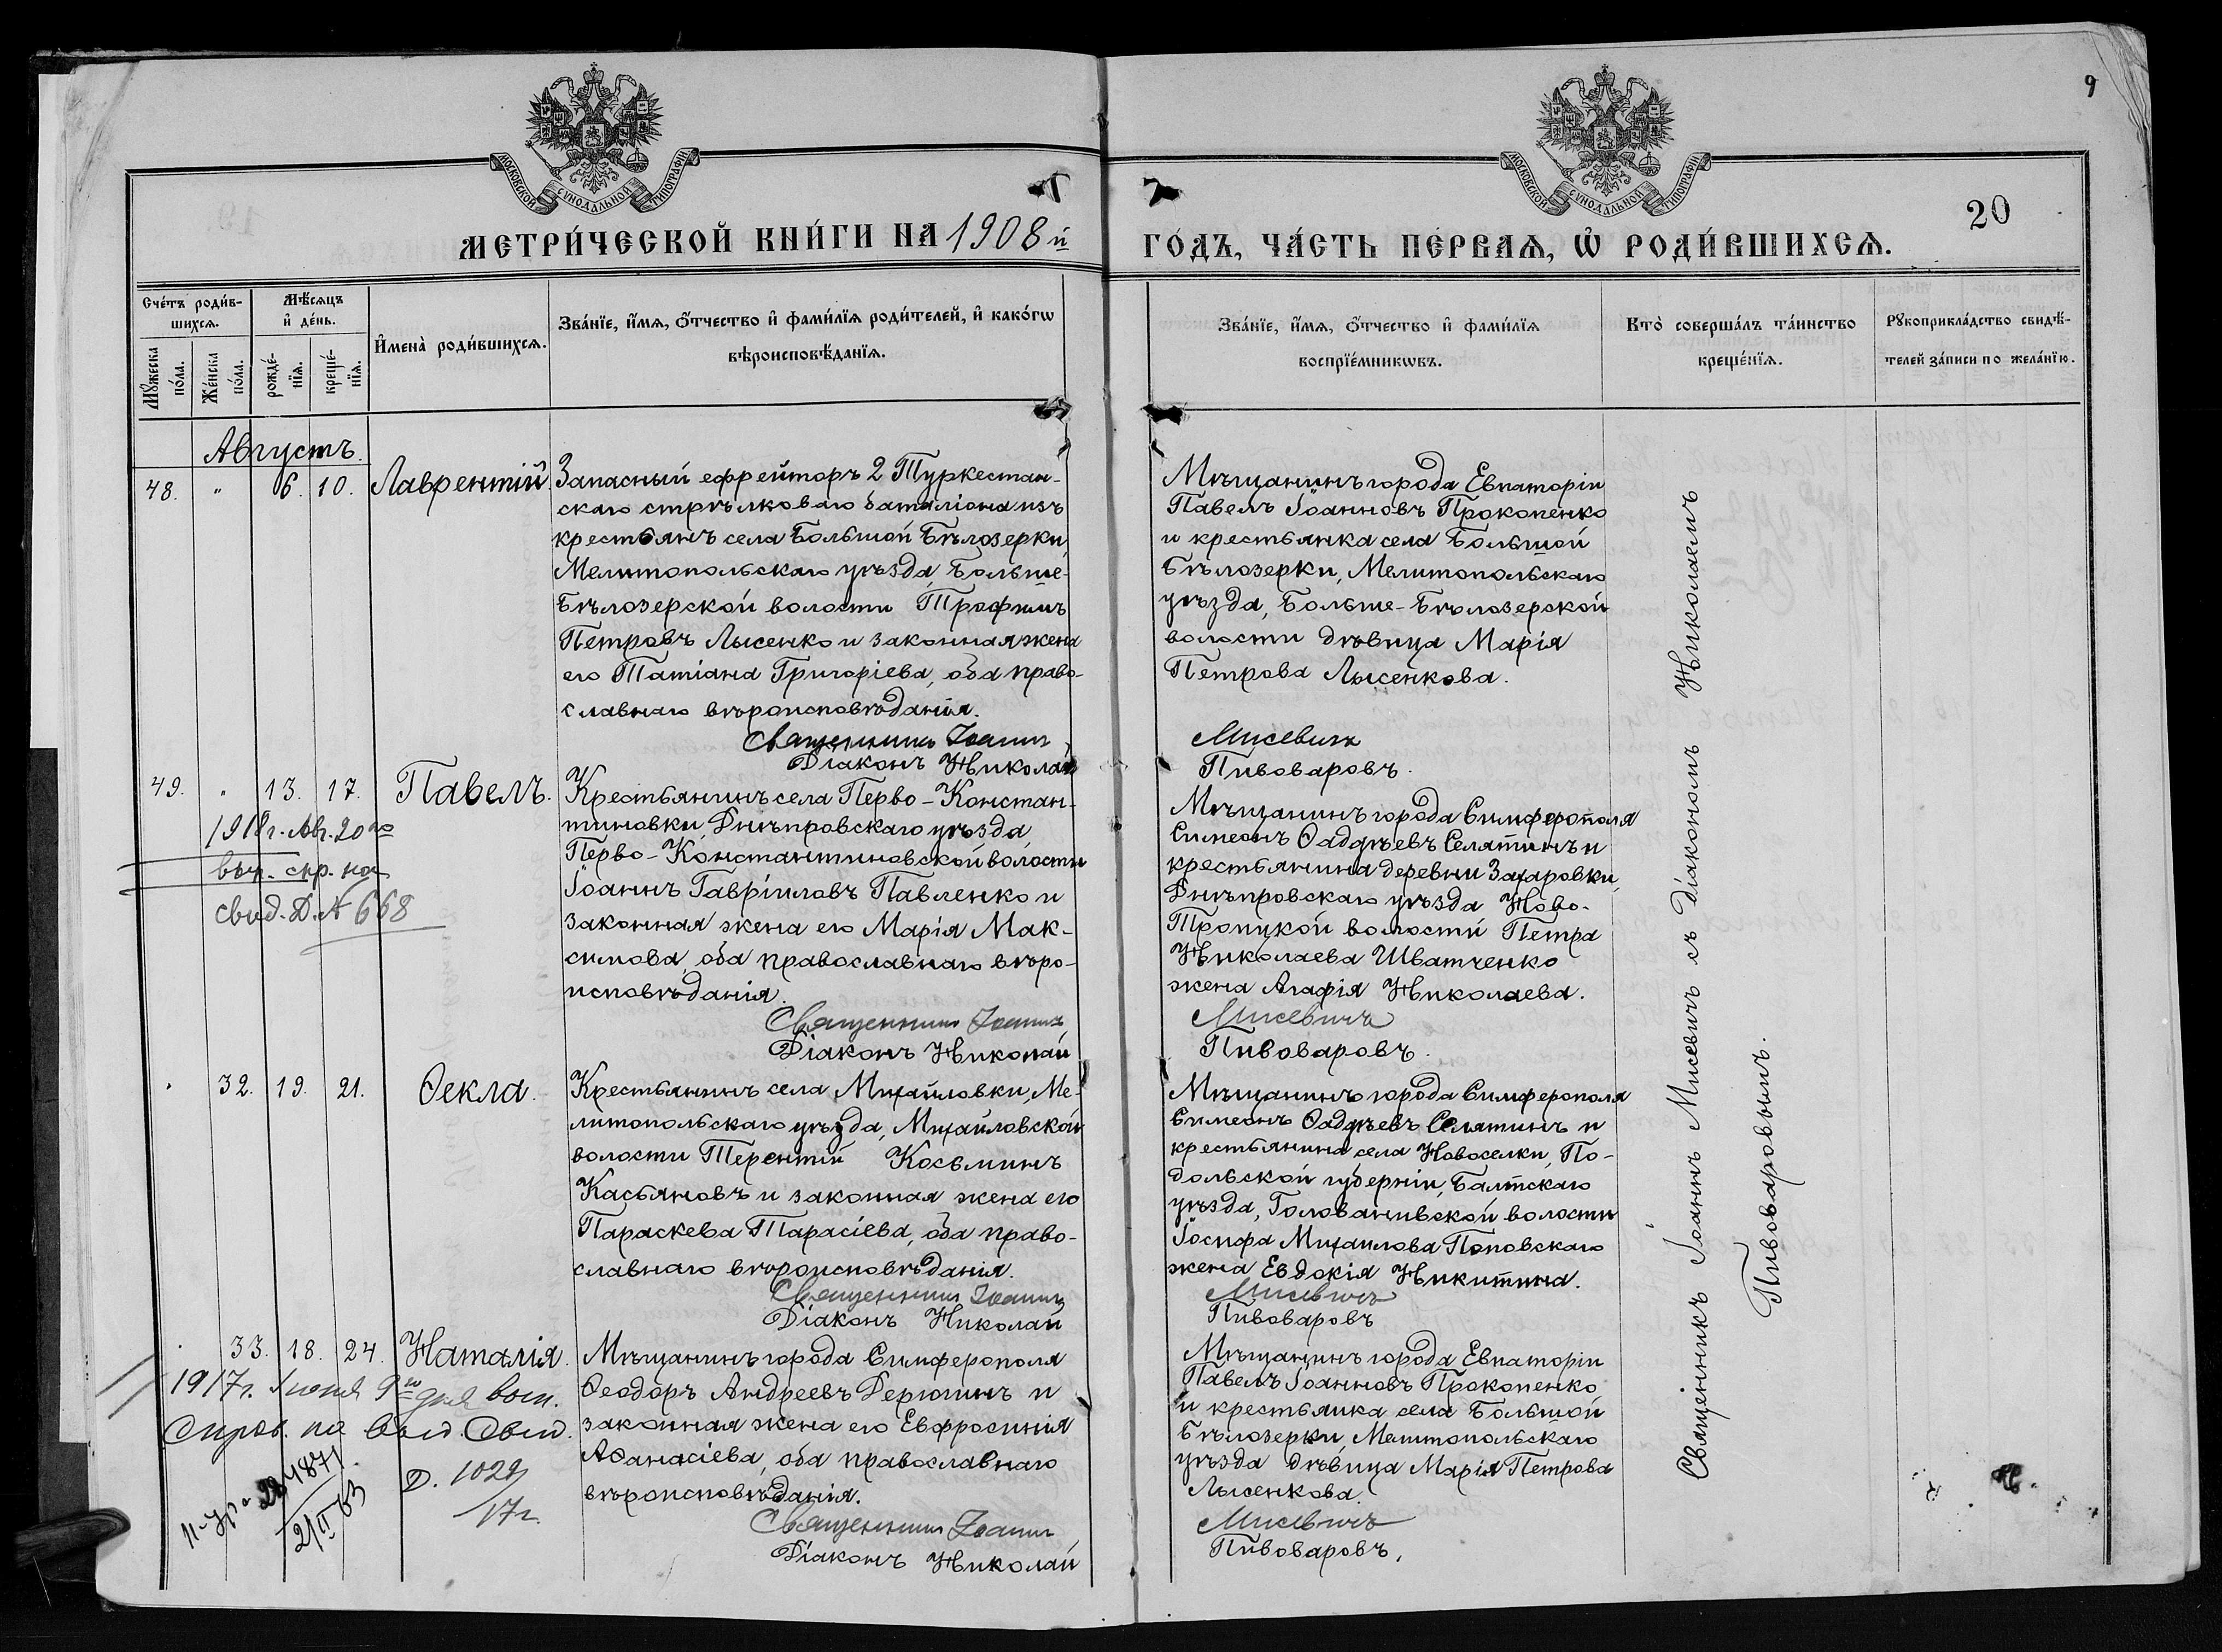 9
МОСКОВСКОЙ СѴНОДАЛЬНОЙ ТИПОГРАФІИ
МОСКОВСКОЙ СѴНОДАЛЬНОЙ ТИПОГРАФІИ
20
МЕТРИ́ЧЕСКОЙ КНИ́ГИ НА 1908 й
ГО́ДЪ, ЧА́СТЬ ПЕ́РВАѦ, Ѡ҆ РОДИ́ВШИХСѦ.
Сче́тъ роди́в-
шихсѧ.
Мѣ́сѧцъ
и҆ де́нь.
Мꙋ́жеска
по́ла.
Же́нска
по́ла.
рожде́-
нїѧ.
креще́-
нїѧ.
И҆мена̀ роди́вшихсѧ.
Зва́нїе, и҆́мѧ, ѻ҆́тчество и҆ фами́лїѧ роди́телей, и҆ како́гѡ
вѣроисповѣ́данїѧ.
Зва́нїе, и҆́мѧ, ѻ҆́тчество и҆ фами́лїѧ
воспрїе́мникѡвъ.
Кто̀ соверша́лъ та́инство
креще́нїѧ.
Рꙋкоприкла́дство свидѣ́-
телей за́писи по жела́нїю.
Августъ.
48. " 6. 10. Лаврентій.
Запасный ефрейторъ 2 Туркестан-
скаго стрѣлковаго баталіона изъ
крестьянъ села Большой Бѣлозерки
Мелитопольскаго уѣзда, Больше-
Бѣлозерской волости Трофимъ
Петровъ Лысенко и законная жена
его Татіана Григоріева, оба право-
славнаго вѣроисповѣданія.
Священникъ Іоаннъ
Діаконъ Николай
Мѣщанинъ города Евпаторіи
Павелъ Іоанновъ Прокопенко
и крестьянка села Большой
Бѣлозерки, Мелитопольскаго
уѣзда, Больше-Бѣлозерской
волости дѣвица Марія
Петрова Лысенкова.
Мисевичъ
Пивоваровъ.
49. " 13. 17. Павелъ.
1918 г. Авг. 20го
выд. спр. на
свид. Д. № 668
Крестьянинъ села Перво-Констан-
тиновки, Днѣпровскаго уѣзда,
Перво-Константиновской волости
Іоаннъ Гавріиловъ Павленко и
законная жена его Марія Мак-
симова, оба православнаго вѣро-
исповѣданія.
Священникъ Іоаннъ
Діаконъ Николай
Мѣщанинъ города Симферополя
Симеонъ Ѳаддѣевъ Селятинъ и
крестьянина деревни Захаровки,
Днѣпровскаго уѣзда Ново-
Троицкой волости Петра
Николаева Шватченко
жена Агафія Николаева.
Мисевичъ
Пивоваровъ.
" 32. 19. 21. Ѳекла.
Крестьянинъ села Михайловки, Ме-
литопольскаго уѣзда, Михайловской
волости Терентій Косьминъ
Касьяновъ и законная жена его
Параскева Тарасіева, оба право-
славнаго вѣроисповѣданія.
Священникъ Іоаннъ
Діаконъ Николай
Мѣщанинъ города Симферополя
Симеонъ Ѳаддѣевъ Селятинъ и
крестьянина села Новоселки, По-
дольской губерніи, Балтскаго
уѣзда, Голованивской волости
Іосифа Михаилова Поповскаго
жена Евдокія Никитина.
Мисевичъ
Пивоваровъ
" 33. 18. 24. Наталія.
1917 г. Іюня 9го дня выд.
Справ. на Свид.
Д. 1029
17 г.
21/II 63
Мѣщанинъ города Симферополя
Ѳеодоръ Андреевъ Дерюгинъ и
законная жена его Евфросинія
Аѳанасіева, оба православнаго
вѣроисповѣданія.
Священникъ Іоаннъ
Діаконъ Николай
Мѣщанинъ города Евпаторіи
Павелъ Іоанновъ Прокопенко
и крестьянка села Большой
Бѣлозерки, Мелитопольскаго
уѣзда дѣвица Марія Петрова
Лысенкова.
Мисевичъ
Пивоваровъ.
Священникъ Іоаннъ Мисевичъ съ діакономъ Николаемъ
Пивоваровымъ.